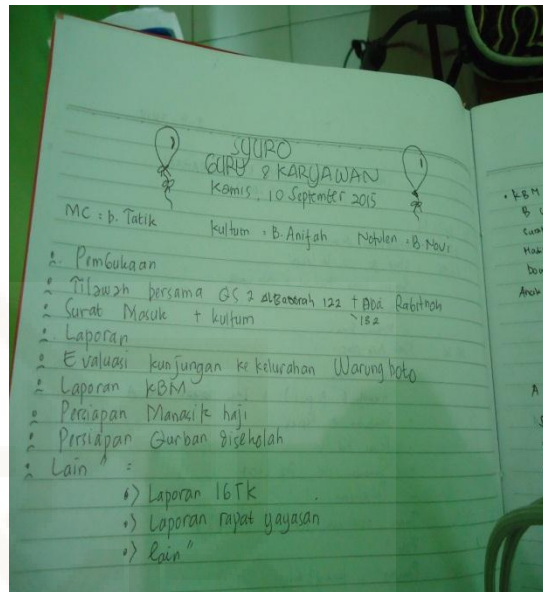 SYURO
GURU & KARYAWAN
Kamis, 10 September 2015
MC : b. Tatik kultum : B. Anifah Notulen : B. Novi
Pembukaan
Tilawah bersama QS 2 AlBaqarah 122 + Doa Rabithah
182
Surat Masuk + kultum
Laporan
Evaluasi kunjungan ke kelurahan Warungboto
Laporan KBM
Persiapan Manasik haji
Persiapan Qurban disekolah
Lain " :
Laporan IGTK
Laporan rapat yayasan
lain"
KBM
B
Anak
A